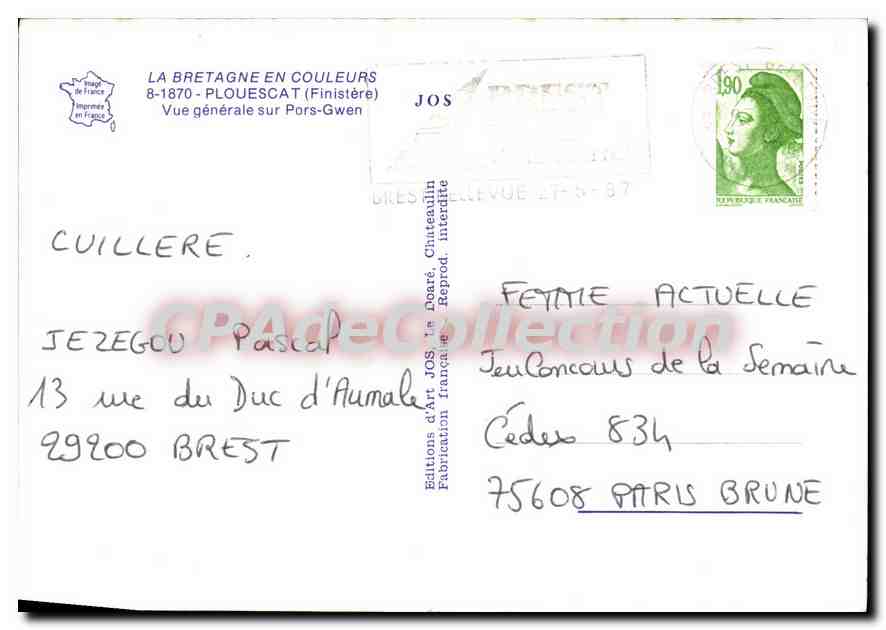 Image
de France
Imprimée
en France
LA BRETAGNE EN COULEURS
8-1870 - PLOUESCAT (Finistère)
Vue générale sur Pors-Gwen
JOS
BREST
BELLEVUE 27-5-87
1,90
POSTES
REPUBLIQUE FRANCAISE
CUILLERE.
JEZEGOU Pascal
13 rue du Duc d'Aumale
29200 BREST
Editions d'Art JOS, Le Doaré, Chateaulin
Fabrication française - Reprod. interdite
FEMME ACTUELLE
Jeu Concours de la Semaine
Cédex 834
75608 PARIS BRUNE
CPAdeCollection